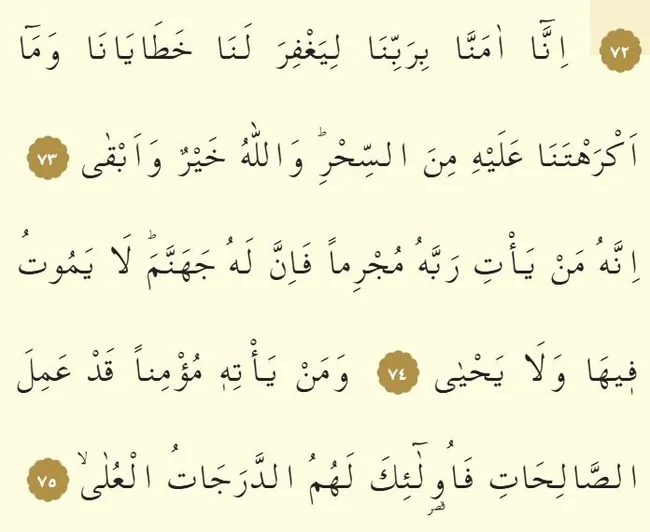 ٧٢ اِنَّٓا اٰمَنَّا بِرَبِّنَا لِيَغْفِرَ لَنَا خَطَايَانَا وَمَٓا
اَكْرَهْتَنَا عَلَيْهِ مِنَ السِّحْرِۜ وَاللّٰهُ خَيْرٌ وَاَبْقٰى ٧٣
اِنَّهُ مَنْ يَأْتِ رَبَّهُ مُجْرِماً فَاِنَّ لَهُ جَهَنَّمَۜ لَا يَمُوتُ
ف۪يهَا وَلَا يَحْيٰى ٧٤ وَمَنْ يَأْتِه۪ مُؤْمِناً قَدْ عَمِلَ
الصَّالِحَاتِ فَاُو۬لٰٓئِكَ لَهُمُ الدَّرَجَاتُ الْعُلٰىۙ ٧٥
قصر